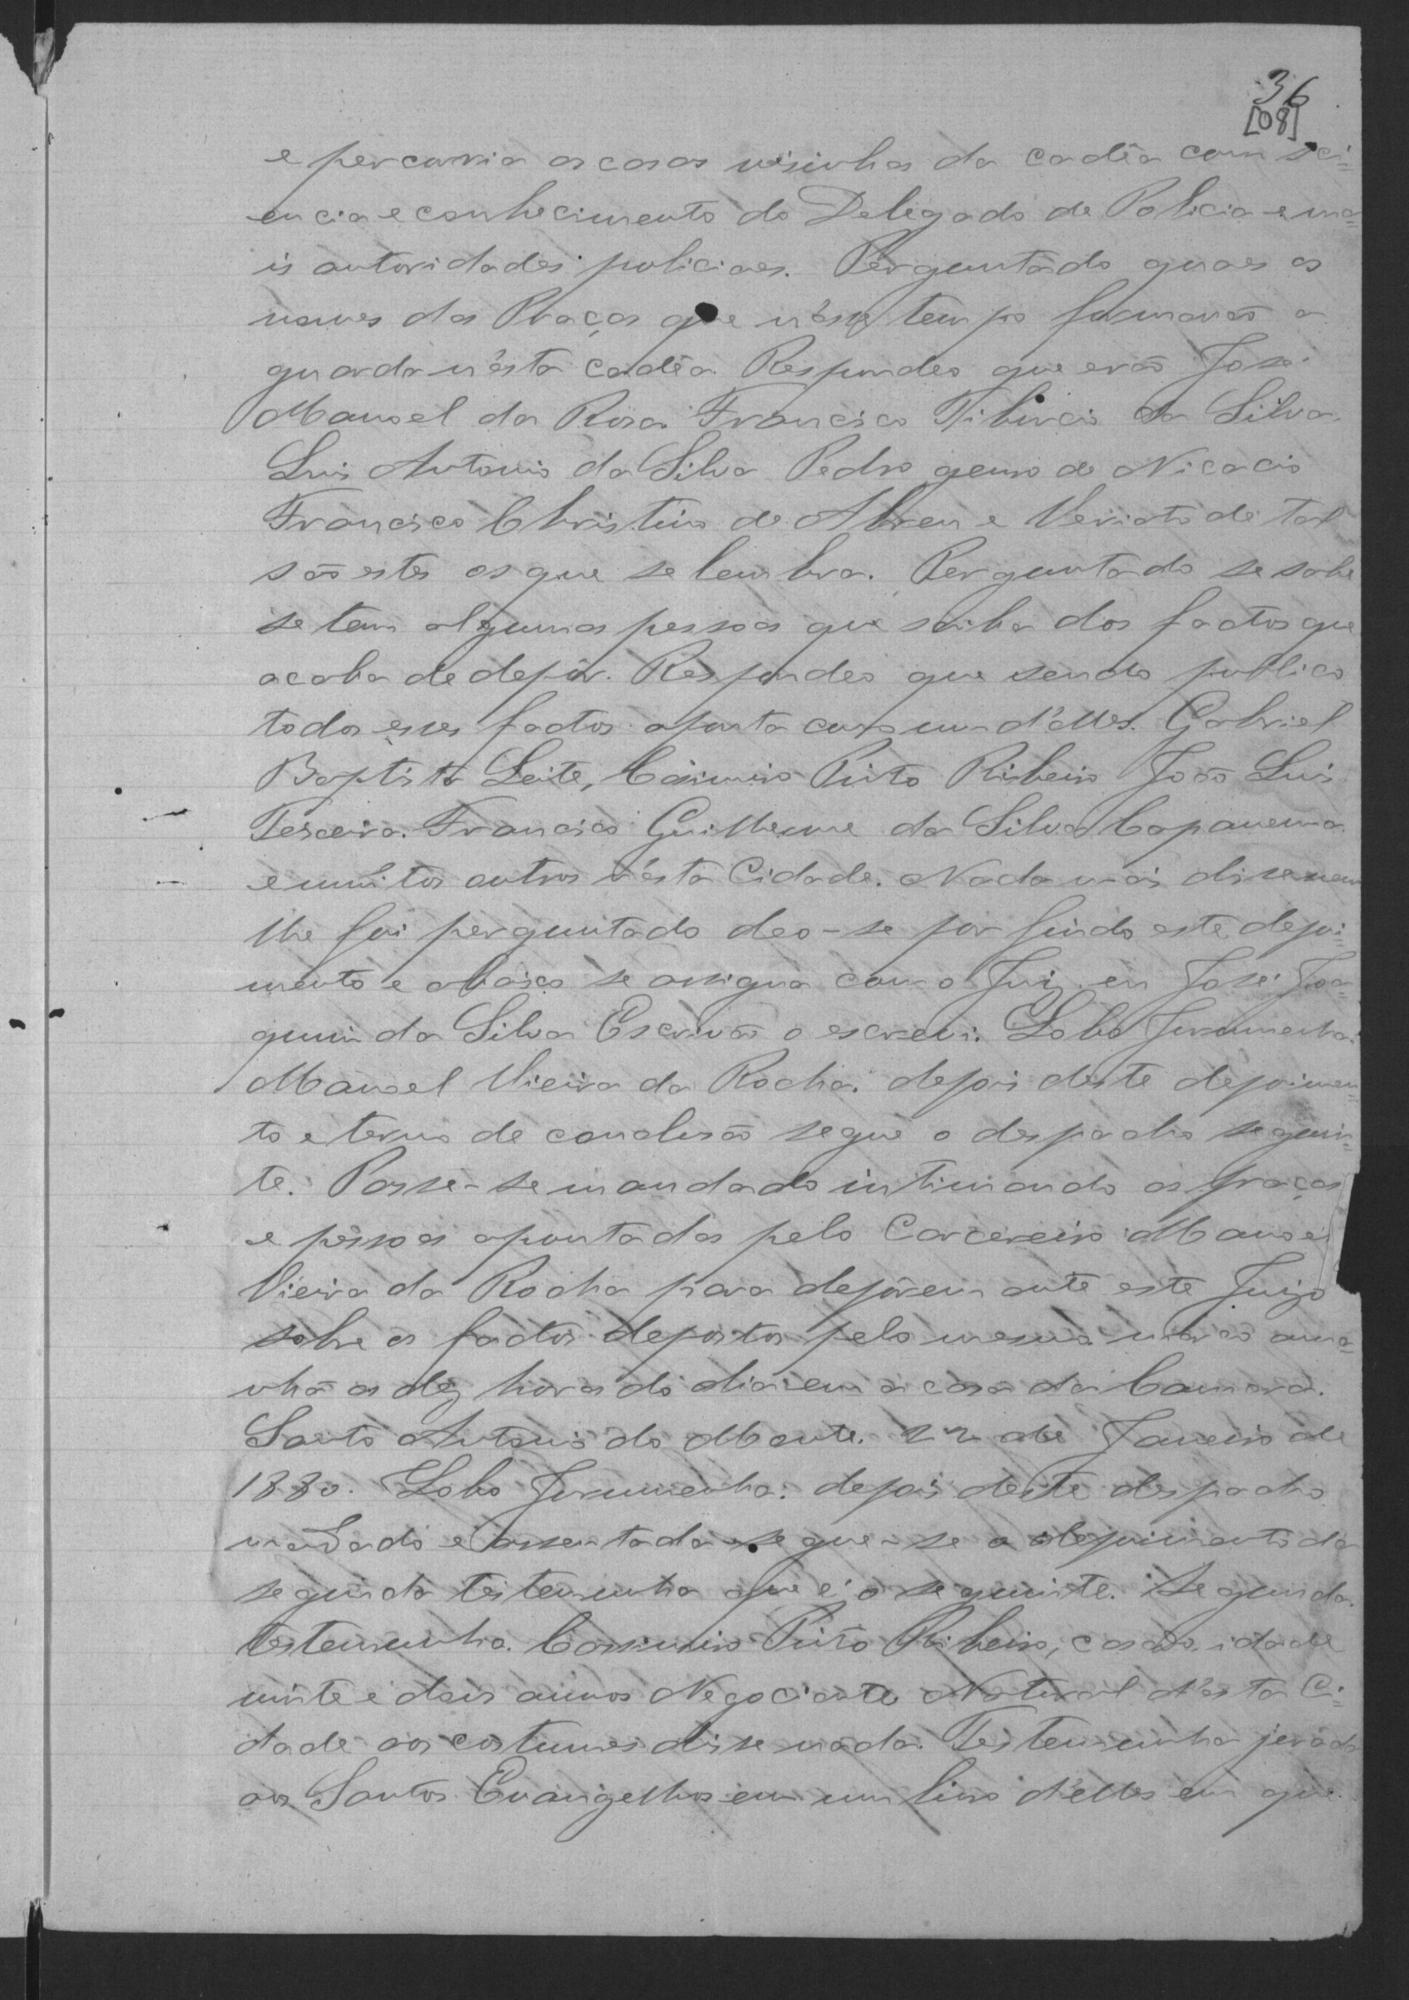 36
[08]
e percorria as casas visinhas da cadêa com sci=
encia e conhecimento do Delegado de Policia e ma=
is autoridades policiaes. Perguntado quaes os
nomes das Praças que n'esse tempo formavão a
guarda n'ésta cadêa Respondeo que erão José
Manoel da Rosa Francisco Tiburcio da Silva
Luis Antonio da Silva Pedro genro de Nicacio
Francisco Christino de Abreu e Veriato de tal
são estes os que se lembra. Perguntado se sabe
se tem algumas pessoas que saiba dos factos que
acaba de depôr. Respondeo que sendo publico
todos esses factos aponta como um d'elles. Gabriel
Baptista Leite, Casimiro Pinto Ribeiro João Luis
Teixeira. Francisco Guilherme da Silva Capanema
e muitos outros n'ésta Cidade. Nada mais disse nem
lhe foi perguntado deo-se por findo este depoi=
mento e abaixo se assigna com o Juiz eu José Joa=
quim da Silva Escrivão o escrevi. Lobo Jurumenha.
Manoel Vieira da Rocha. depois deste depoimen=
to e termo de conclusão segue o despacho seguin=
te. Passe-se mandado intimando as praças
e pessoas apontadas pelo Carcereiro Manoel
Vieira da Rocha para depôrem ante este Juizo
sobre os factos depostos pelo mesmo marco ama=
nhã as dez horas do dia em a casa da Camara.
Santo Antonio do Monte. 22 de Janeiro de
1880. Lobo Jurumenha. depois deste despacho
mandado e assentada segue-se o depoimento da
segunda testemunha que é o seguinte. Segunda
testemunha. Casimiro Pinto Ribeiro, casado idade
vinte e dois annos Negociante Natural N'ésta Ci=
dade aos costumes disse nada. Testemunha jurada
aos Santos Evangelhos em um livro d'elles em que